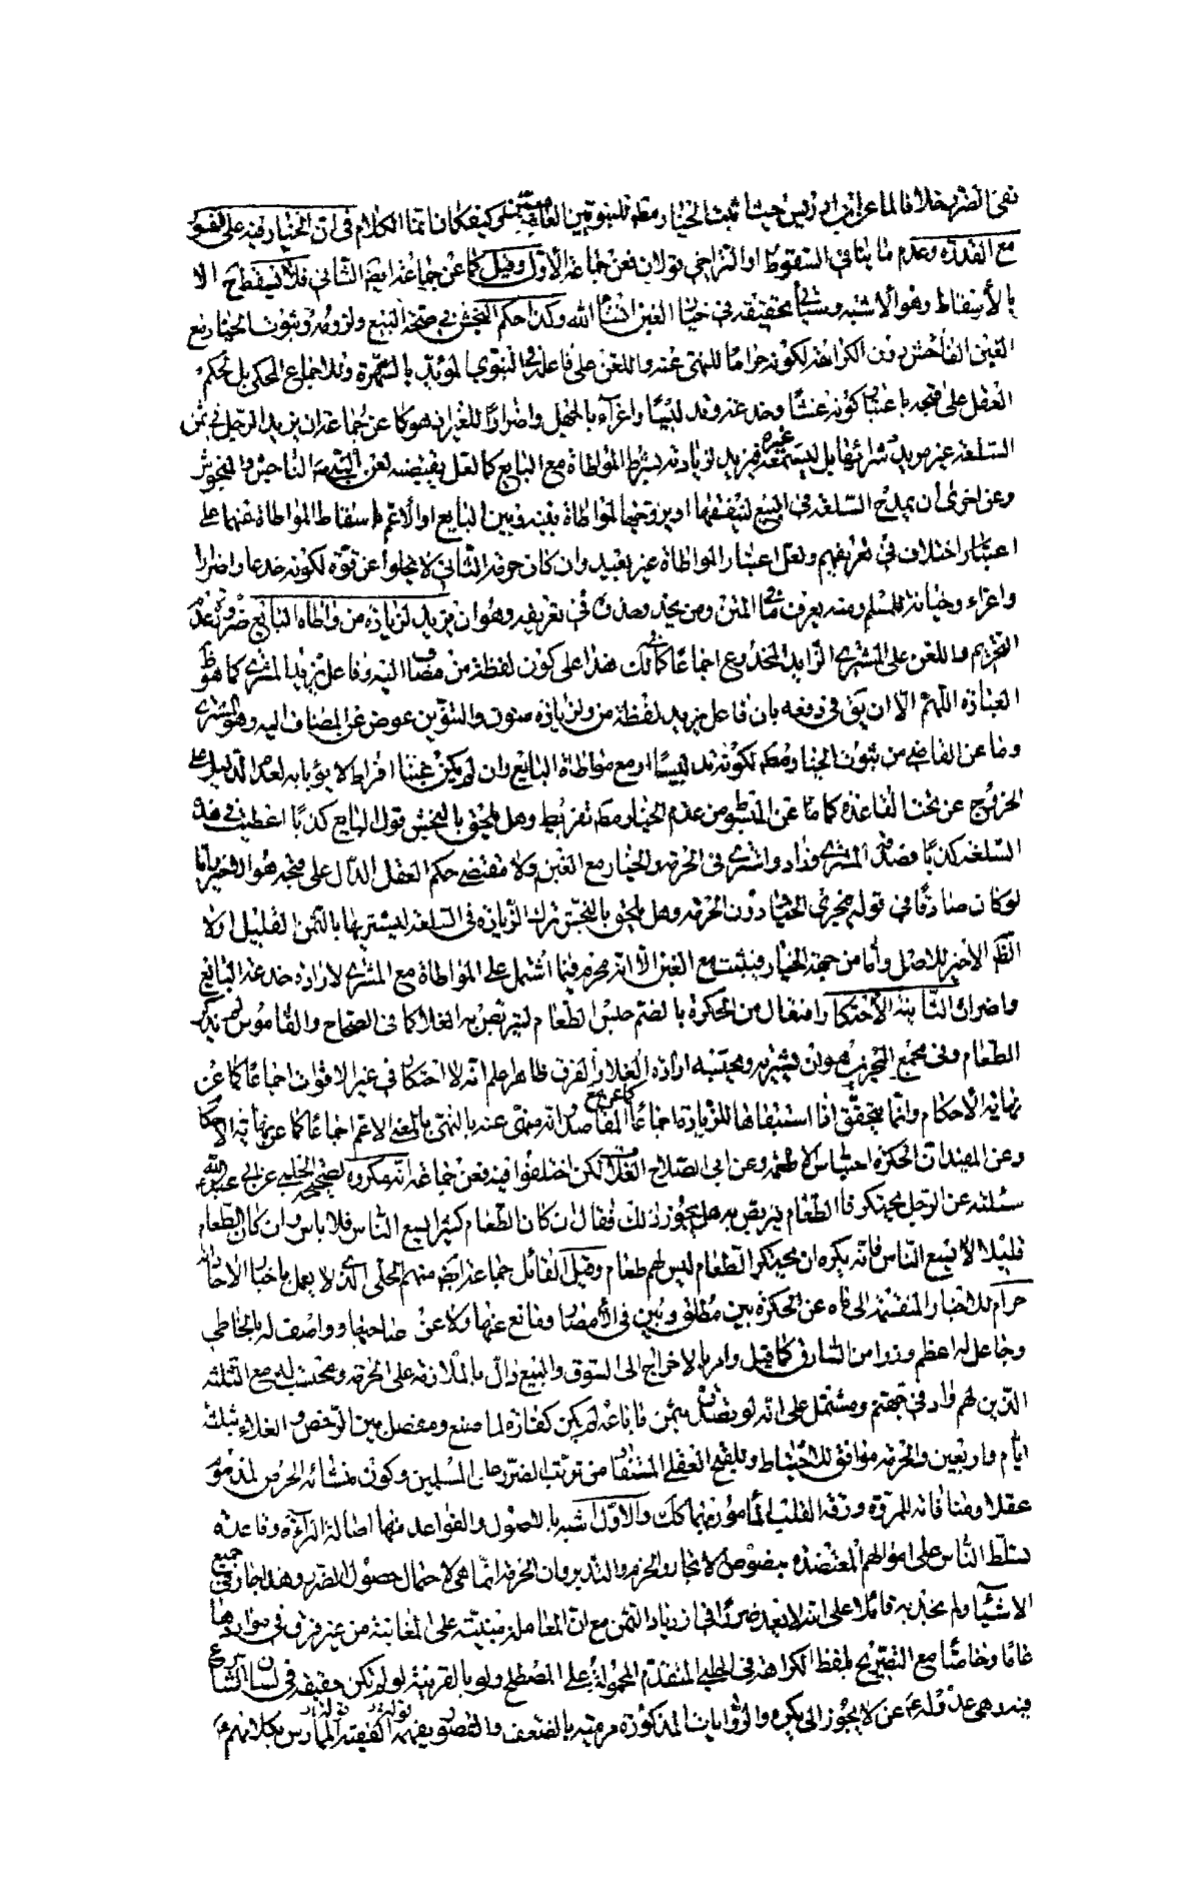 نفى الضرر خلافا لما عن ابن ادريس حيث اثبت الخيار مطلقا للنبويين العامية وكيف كان تمام الكلام في ان الخيار فيه على الفور
مع القدرة وعدم ما ينافي السقوط او التراخي قولان فعن جماعة الاول وقيل كما عن جماعة ايضا الثاني فلا يسقط الا
بالاسقاط وهو الاشبه وسيأتي تحقيقه في خيار الغبن انشاء الله وكذا حكم النجش في صحة البيع ولزومه وثبوت الخيار مع
الغبن الفاحش دون الكراهة لكونه حراما للنهي عنه واللعن على فاعله في النبوي المؤيد بالشهرة ونقل اجماع المحكي بل بحكم
العقل على قبحه باعتبار كونه غشا وخدعة وتدليسا واغراء بالجهل واضرارا للغير وهو كما عن جماعة ان يزيد الرجل في ثمن
السلعة غير مريد شرائها بل ليسمعه غيره فيزيد لزيادته بشرط المواطاة مع البايع كما لعل يقتضيه لعن الناجش والمنجوش
وعن اخرى ان يمدح السلعة في البيع لينفقها او يروجها لمواطاة بينه وبين البايع او الاعم باسقاط المواطاة عنهما على
اعتبار اختلاف في تعريفهم ولعل اعتبار المواطاة غير بعيد وان كان حرمة الثاني لا يخلوا عن قوة لكونه خدعا واضرارا
واغراء وخيانة للمسلم ومنه يعرف ما في المتن ومن يحذو حذوه في تعريفه وهو ان يزيد لزيادة من واطاه البايع ضرورة عدم
التحريم واللعن على المشتري الزايد المخدوع اجماعا كما لك هذا على كون لفظة من مضاف اليه وفاعل يزيد المشتري كما هو ظ
العبارة اللهم الا ان يق في دفعه بان فاعل يزيد لفظة من ولزيادة منون والتنوين عوض عن المضاف اليه وهو المشتري
وما عن القاضي من ثبوت الخيار مطلقا لكونه تدليسا او مع مواطاة البايع وان لم يكن غبنا افراط لا يؤبه به لعدم الدليل على
الخروج عن تحت القاعدة كما ما عن المبسوط من عدم الخيار مطلقا تفريط وهل يلحق بالنجش قول البايع كذبا اعطيت في هذه
السلعة كذا فصدقه المشتري وزاد واشترى في الحرمة والخيار مع الغبن ولا مقتضى حكم العقل الدال على قبحه هو الاخير اما
لو كان صادقا في قوله فيجري الخيار دون الحرمة وهل يلحق بالنجش ترك الزيادة في السلعة ليشتريها بالثمن القليل اولا
الظ الاخير للاصل واما من جهة الخيار فيثبت مع الغبن الا انه محرم فيما اشتمل على المواطاة مع المشتري لارادة خدعة البايع
واضراره الثانية الاحتكار وافتعال من الحكرة بالضم حبس الطعام ليتربص به الغلاء كما في الصحاح والقاموس لم يذكر
الطعام وفي مجمع البحرين هو ان يشتريه ويحبسه ارادة الغلاء والفرق ظاهر علم انه لا احتكار في غير الاقوات اجماعا كما عن
نهاية الاحكام وانما يتحقق اذا استبقاها للزيادة اجماعا كما عن مجمع المقاصد انه منهي عنه بالنهي بالمعنى الاعم اجماعا كما عن نهاية الاحكام
وعن المفيد ان الحكرة احتباس الاطعمة وعن ابي الصلاح الغلات لكن اختلفوا فيه فعن جماعة انه مكروه لصحيح الحلبي عن ابي عبد الله
سئلته عن الرجل يحتكر الطعام فيربص به هل يجوز ذلك فقال ان كان الطعام كثيرا يسع الناس فلا باس وان كان الطعام
قليلا لا يسع الناس فانه يكره ان يحتكر الطعام ليس لهم طعام وقيل القائل جماعة ايضا منهم الحلي الذي لا يعمل باخبار الاحاد انه
حرام للاخبار المنقسمة الى ناه عن الحكرة بين مطلق وبين في الامصار ومانع عنها ولاعن صاحبها وواصف له بالخاطي
وجاعل له اعظم وزرا من السارق كما قيل وامر بالاخراج الى السوق والبيع دال بالملازمة على الحرمة ومحتسب له مع الثلثة
الذين لهم واد في جهنم ومشتمل على انه لو تصدق بثمن ما باعه لم يكن كفارة لما صنع ومفصل بين الرخص والغلاء بثلثة
ايام واربعين والحرمة موافق للاحتياط وللقبح العقلي المستفاد من ترتب الضرر على المسلمين وكون منشائه الحرص المذموم
عقلا ومنافاته للمروة ورقة القلب المأمور بهما كك والاول اشبه بالاصول والقواعد منها اصالة البراءة وقاعدة
تسلط الناس على اموالهم المعتضدة بنصوص الاتجار والحزم والتدبير وان الحرمة انما هي لاحتمال حصول الضرر وهذا جار في جميع
الاشياء ولم نجد به قائلا على انه لا يعد ضررا في ازدياد الثمن مع ان المعاملة مبنية على المغابنة من غير فرق في مواردها
عاما وخاصا مع التصريح بلفظ الكراهة في الحلبي المتقدم المحمولة على المصطلح ولو بالقرينة لو لم تكن حقيقة في لسان الشارع
فيه وهي عدوله عن لا يجوز الى يكره والروايات المذكورة مرمية بالضعف والقصور يفهمه الفقيه الممارس بكلامهم